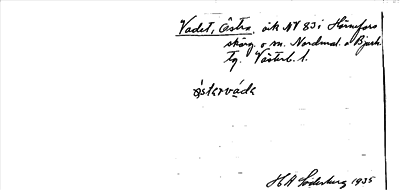 Vadet, Östra, åik NV 83 i Hörnefors
skärg. o m. Nordmal. o Bjurh.
tg. Västerb. l.
östervåda
H A Söderberg 1935